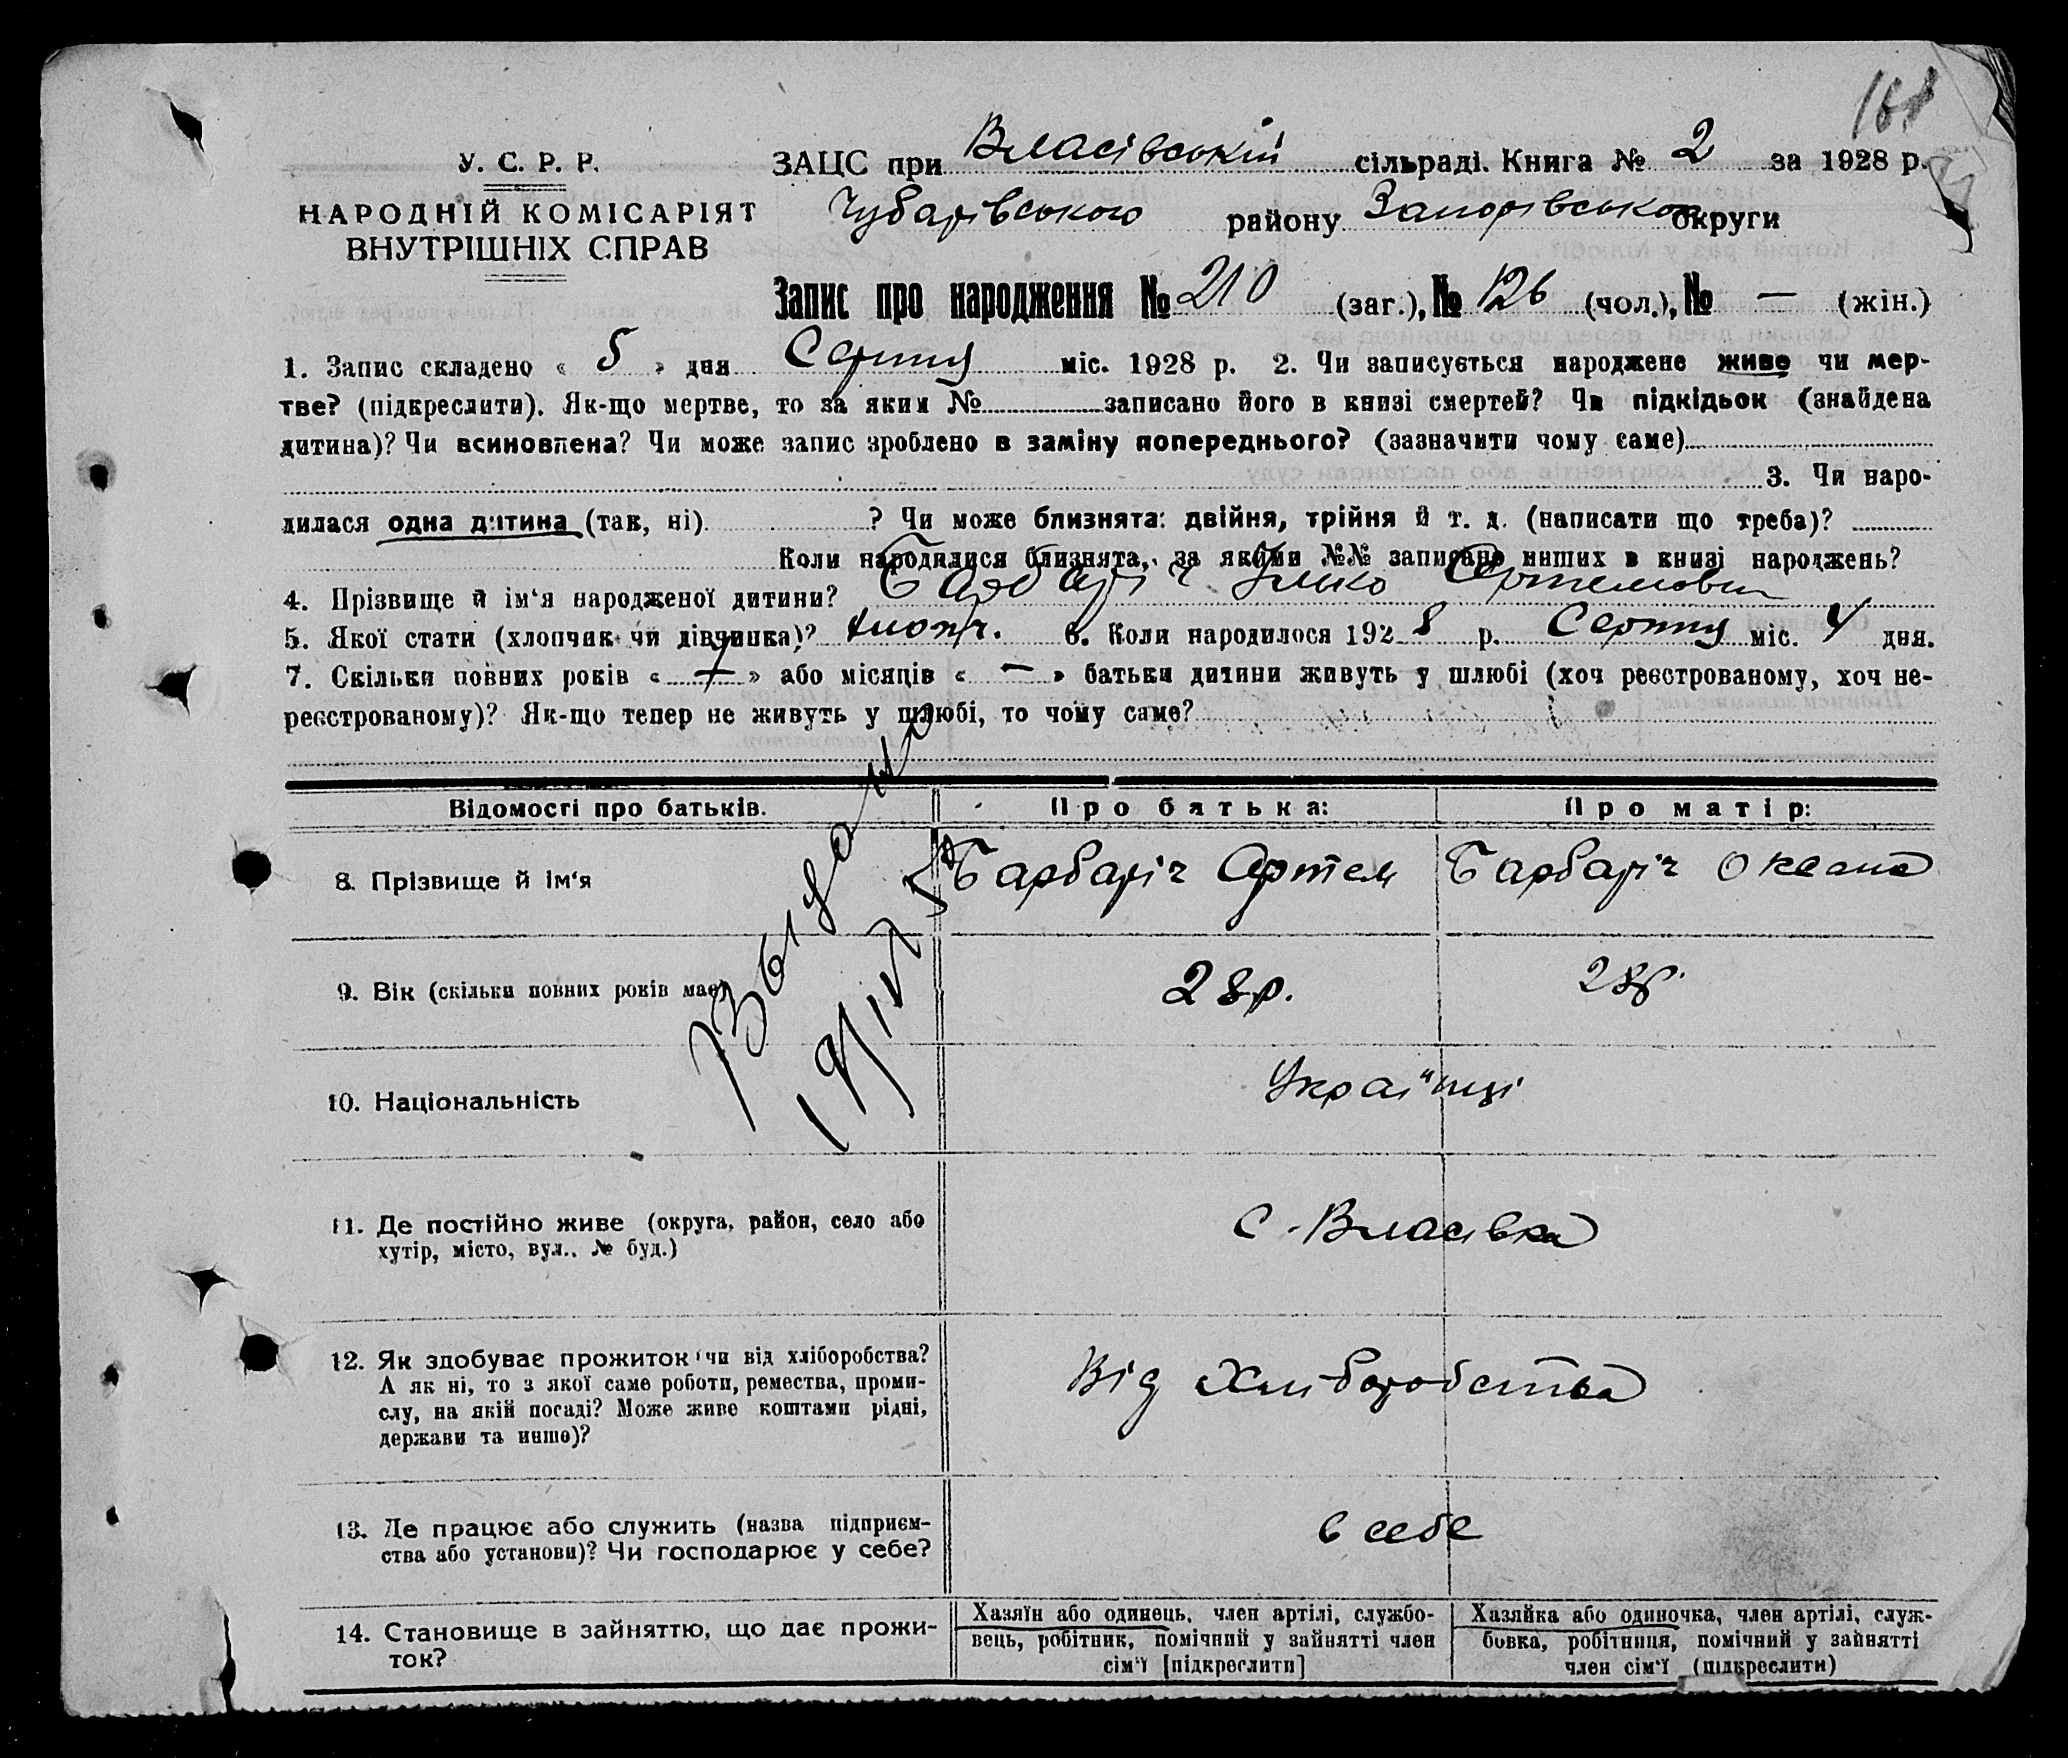 168
У. С. Р. Р.
НАРОДНІЙ КОМІСАРІЯТ
ВНУТРІШНІХ СПРАВ
ЗАЦС при Власівській сільраді. Книга № 2 за 1928 р.
Чубарівського району Запорівської округи
Запис про народження № 210 (заг.), № 126 (чол.), № — (жін.)
1. Запис складено « 5 » дня Серпня міс. 1928 р. 2. Чи записується народжене живе чи мер-
тве? (підкреслити). Як-що мертве, то за яким № записано його в книзі смертей? Чи підкідьок (знайдена
дитина)? Чи всиновлена? Чи може запис зроблено в заміну попереднього? (зазначити чому саме)
3. Чи наро-
дилася одна дитина (так, ні). ? Чи може близнята: двійня, трійня й т. д. (написати що треба)?
Коли народилися близнята, за якими №№ записано инших в книзі народжень?
4. Прізвище й ім‘я народженої дитини? Барбаріч Ілько Артемович
5. Якої стати (хлопчик чи дівчинка)? 6. Коли народилося 1928 р. Серпня міс. 4 дня.
7. Скільки повних років « 7 » або місяців « — » батьки дитини живуть у шлюбі (хоч реєстрованому, хоч не-
реєстрованому)? Як-що тепер не живуть у шлюбі, то чому саме?
Відомості про батьків. Про батька: Про матір:
8. Прізвище й ім‘я Барбаріч Артем Барбаріч Оксана
9. Вік (скільки повних років має) 28р. 28р.
10. Національність Українці
11. Де постійно живе (округа, район, село або
хутір, місто, вул., № буд.)
с. Власівка
12. Як здобуває прожиток чи від хліборобства?
А як ні, то з якої саме роботи, ремества, проми-
слу, на якій посаді? Може живе коштами рідні,
держави та инше)?
Від Хліборобства
13. Де працює або служить (назва підприєм-
ства або установи)? Чи господарює у себе?
в себе
14. Становище в зайняттю, що дає прожи-
ток?
Хазяїн або одинець, член артілі, службо-
вець, робітник, помічний у зайнятті член
сім‘ї [підкреслити]
Хазяйка або одиночка, член артілі, служ-
бовка, робітниця, помічний у зайнятті
член сім‘ї (підкреслити)